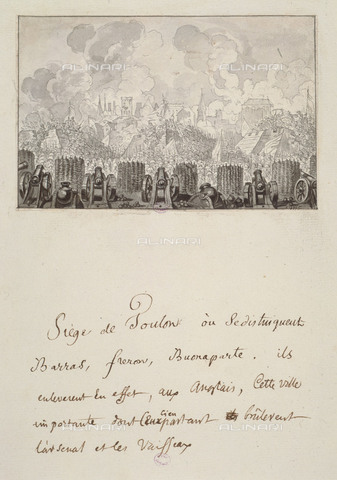 ALINARI
ALINARI
Siège de Toulon où se distinguent
Barras, freron, Buonaparte. ils
enleverent en effet, aux Anglais, Cette ville
importante dont Ceux cien partant brûlerent
l'arsenal et les Vaisseaux